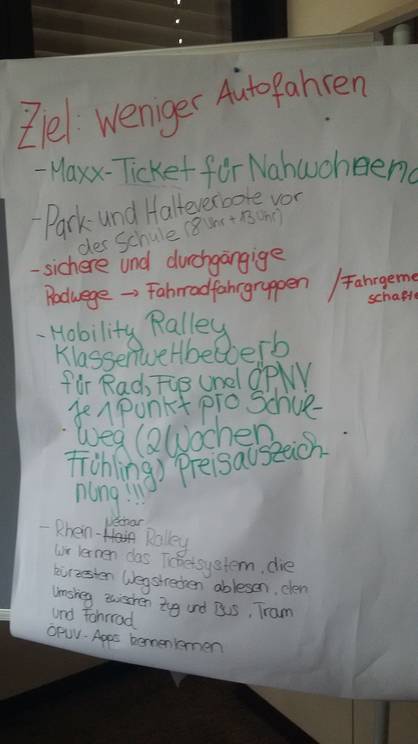 Ziel: weniger Autofahren
- Maxx-Ticket für Nahwohnend
- Park- und Halteverbote vor
der Schule (8 Uhr + 13 Uhr)
- sichere und durchgängige
Radwege → Fahrradfahrgruppen / Fahrgeme
schafte
- Mobility Ralley
Klassenwettbewerb
für Rad, Fuß und ÖPNV
je 1 Punkt pro Schul-
weg (2 Wochen
Frühling) Preisauszeich-
nung!!!
Neckar
- Rhein- Ralley
Wir lernen das Ticketsystem, die
kürzesten Wegstrecken ablesen, den
Umstieg zwischen Zug und Bus, Tram
und Fahrrad
ÖPUV-Apps kennenlernen